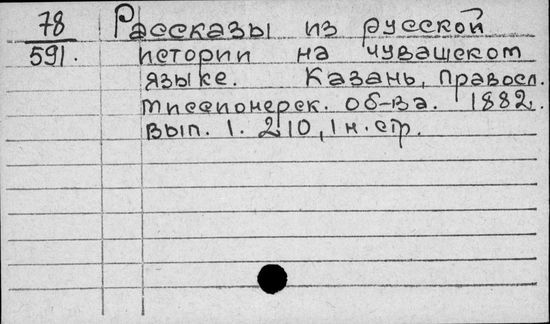 78 Рассказы из русской
591. истории на чувашском
языке. Казань, Правосл.
Миссионерск. об-ва. 1882.
Вып. 1. 210, 1 н. стр.